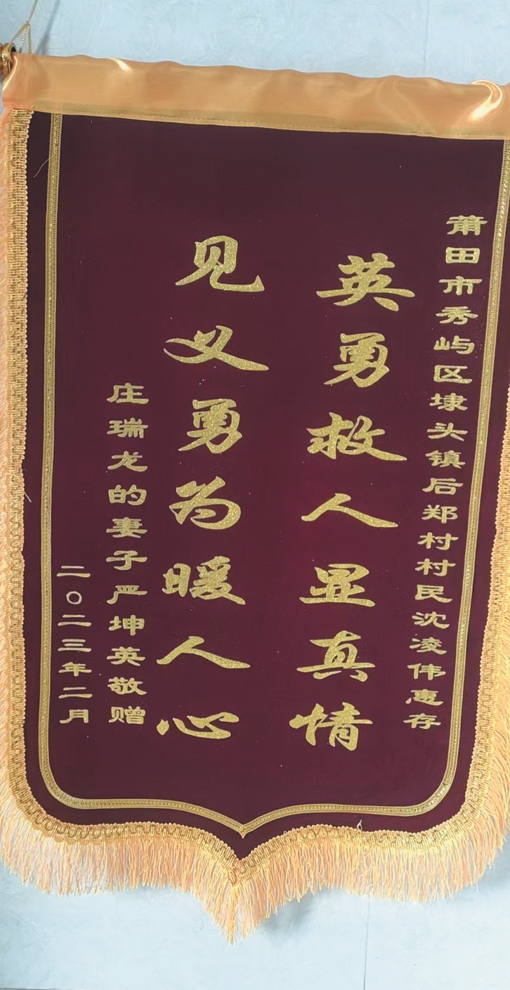 莆田市秀屿区埭头镇后郑村村民沈凌伟惠存
英勇救人显真情
见义勇为暖人心
庄瑞龙的妻子严坤英敬赠
二〇二三年二月